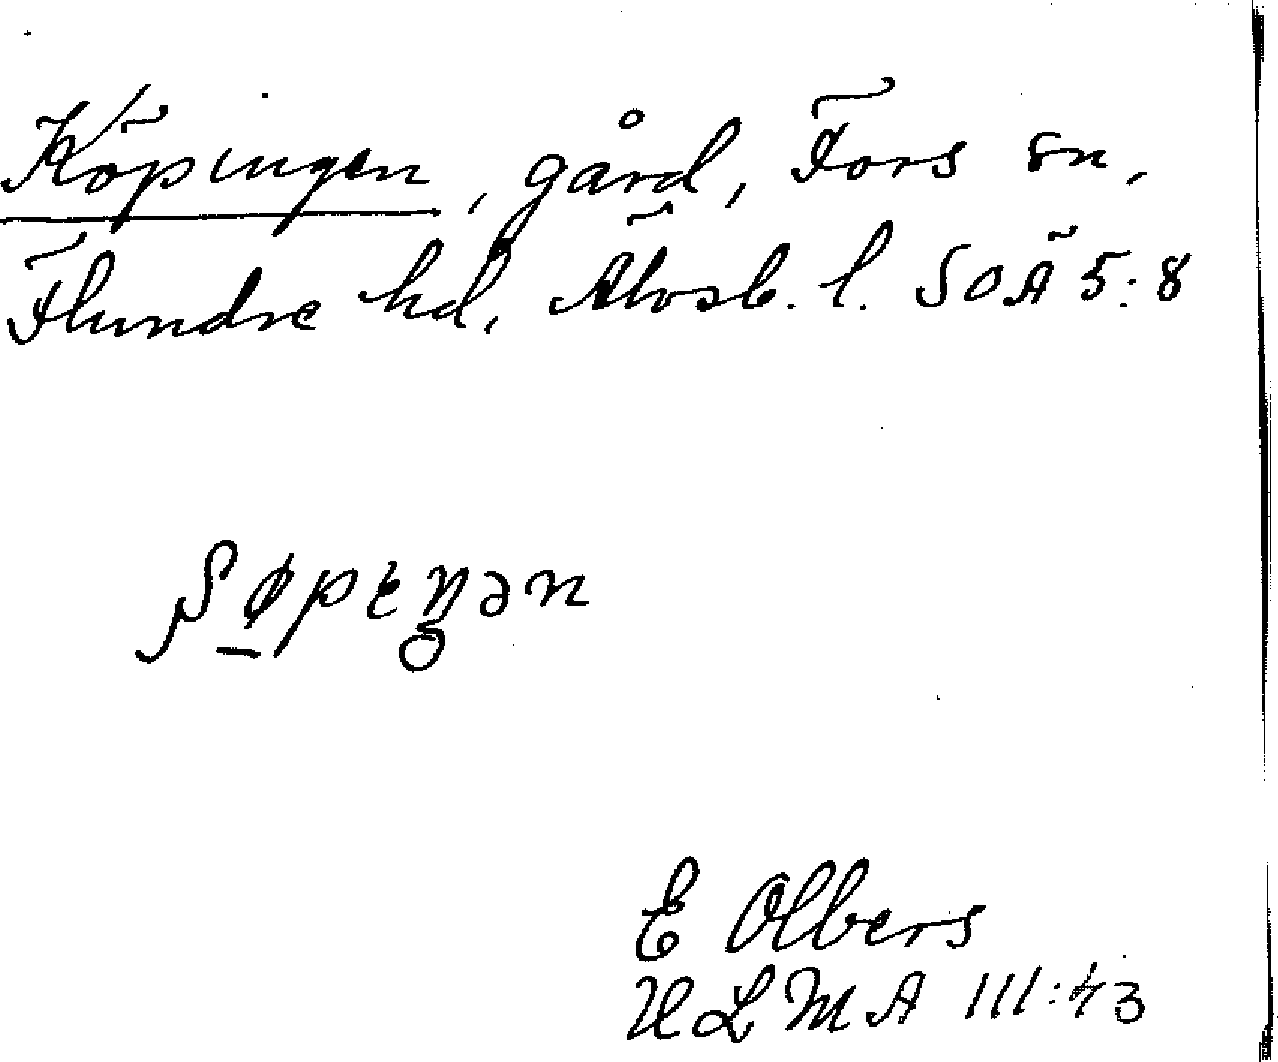 Köpingen, gård, Fors sn,
Flundre hd, Älvsb. l. SOÄ 5:8
E Olbers
ULMA 111:43